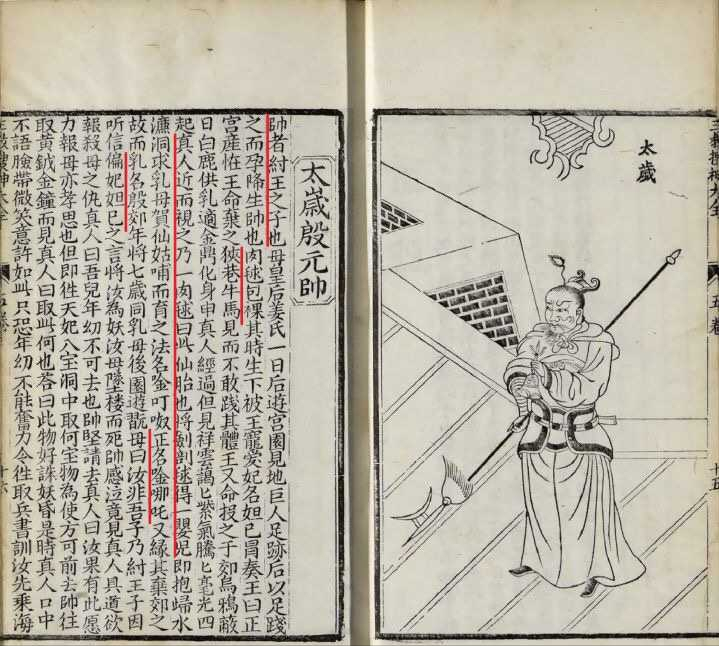 太歲
五卷
十五
太歲殷元帥
帥者紂王之子也母皇后姜氏一日后遊宮園見地巨人足跡后以足踐
之而孕降生帥也肉毬包裸其時生下被王寵愛妃名妲已冒奏王曰正
宮産恠王命棄之狹巷牛馬見而不敢踐其體王又命投之于郊烏鴉蔽
日白鹿供乳適金鼎化身申真人經過但見祥雲靄匕紫氣騰匕毫光四
起真人近而視之乃一肉毬曰此仙胎也將劍剖毬得一嬰児即抱歸水
濂洞求乳母賀仙姑哺而育之法名唫叮呶正名唫哪吒又緣其棄郊之
故而乳名殷郊年将七歲同乳母後園遊翫母曰汝非吾子乃紂王子因
听信偏妃妲已之言將汝為妖汝母墜楼而死帥感泣竟見真人具道欲
報殺母之仇真人曰吾兒年幼不可去也帥堅請去真人曰汝果有此愿
力報母亦孝思也但即徃天妃八宝洞中取何宝物為使方可前去帥往
取黃鉞金鐘而見真人曰取此何也荅曰此物好誅妖昏是時真人口中
不語臉帶微笑意許如此只恐年幼不能奮力令徃取兵書訓汝先乘海